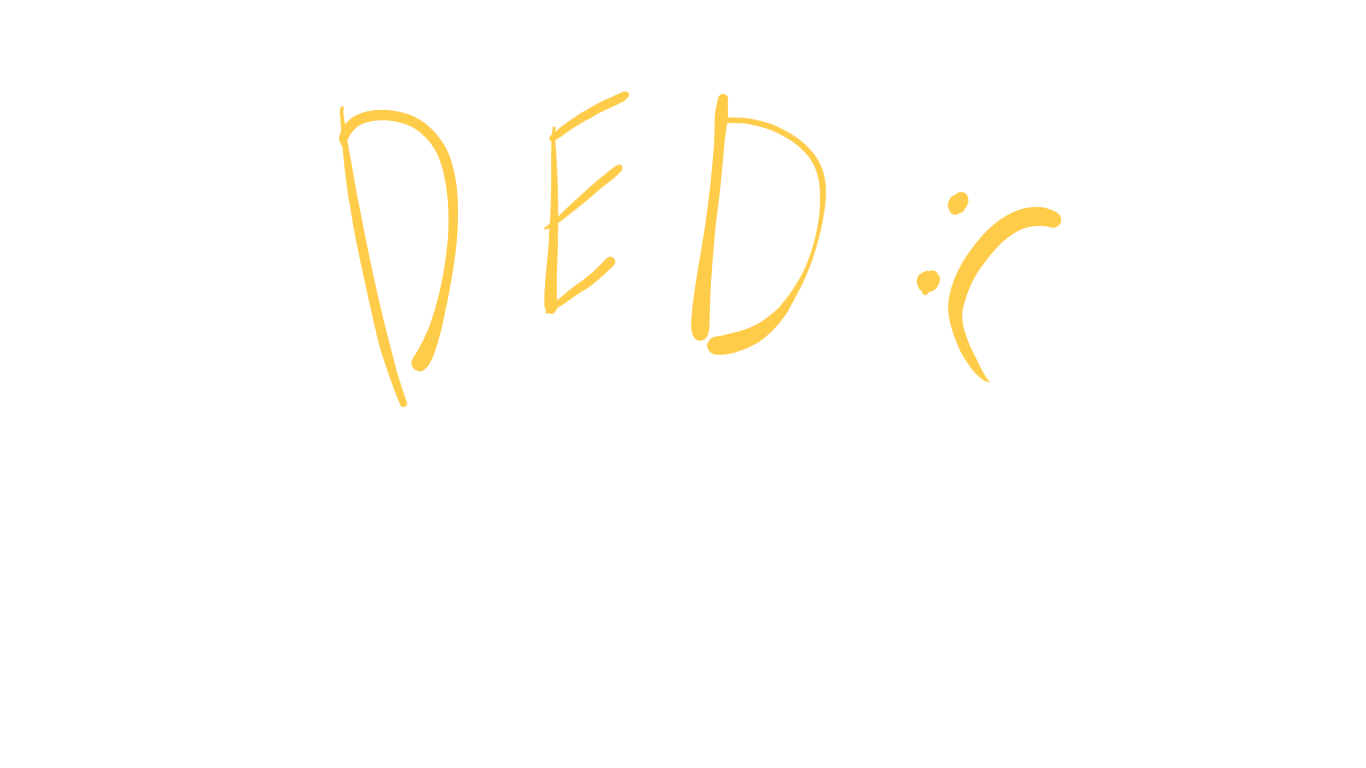 DED :(